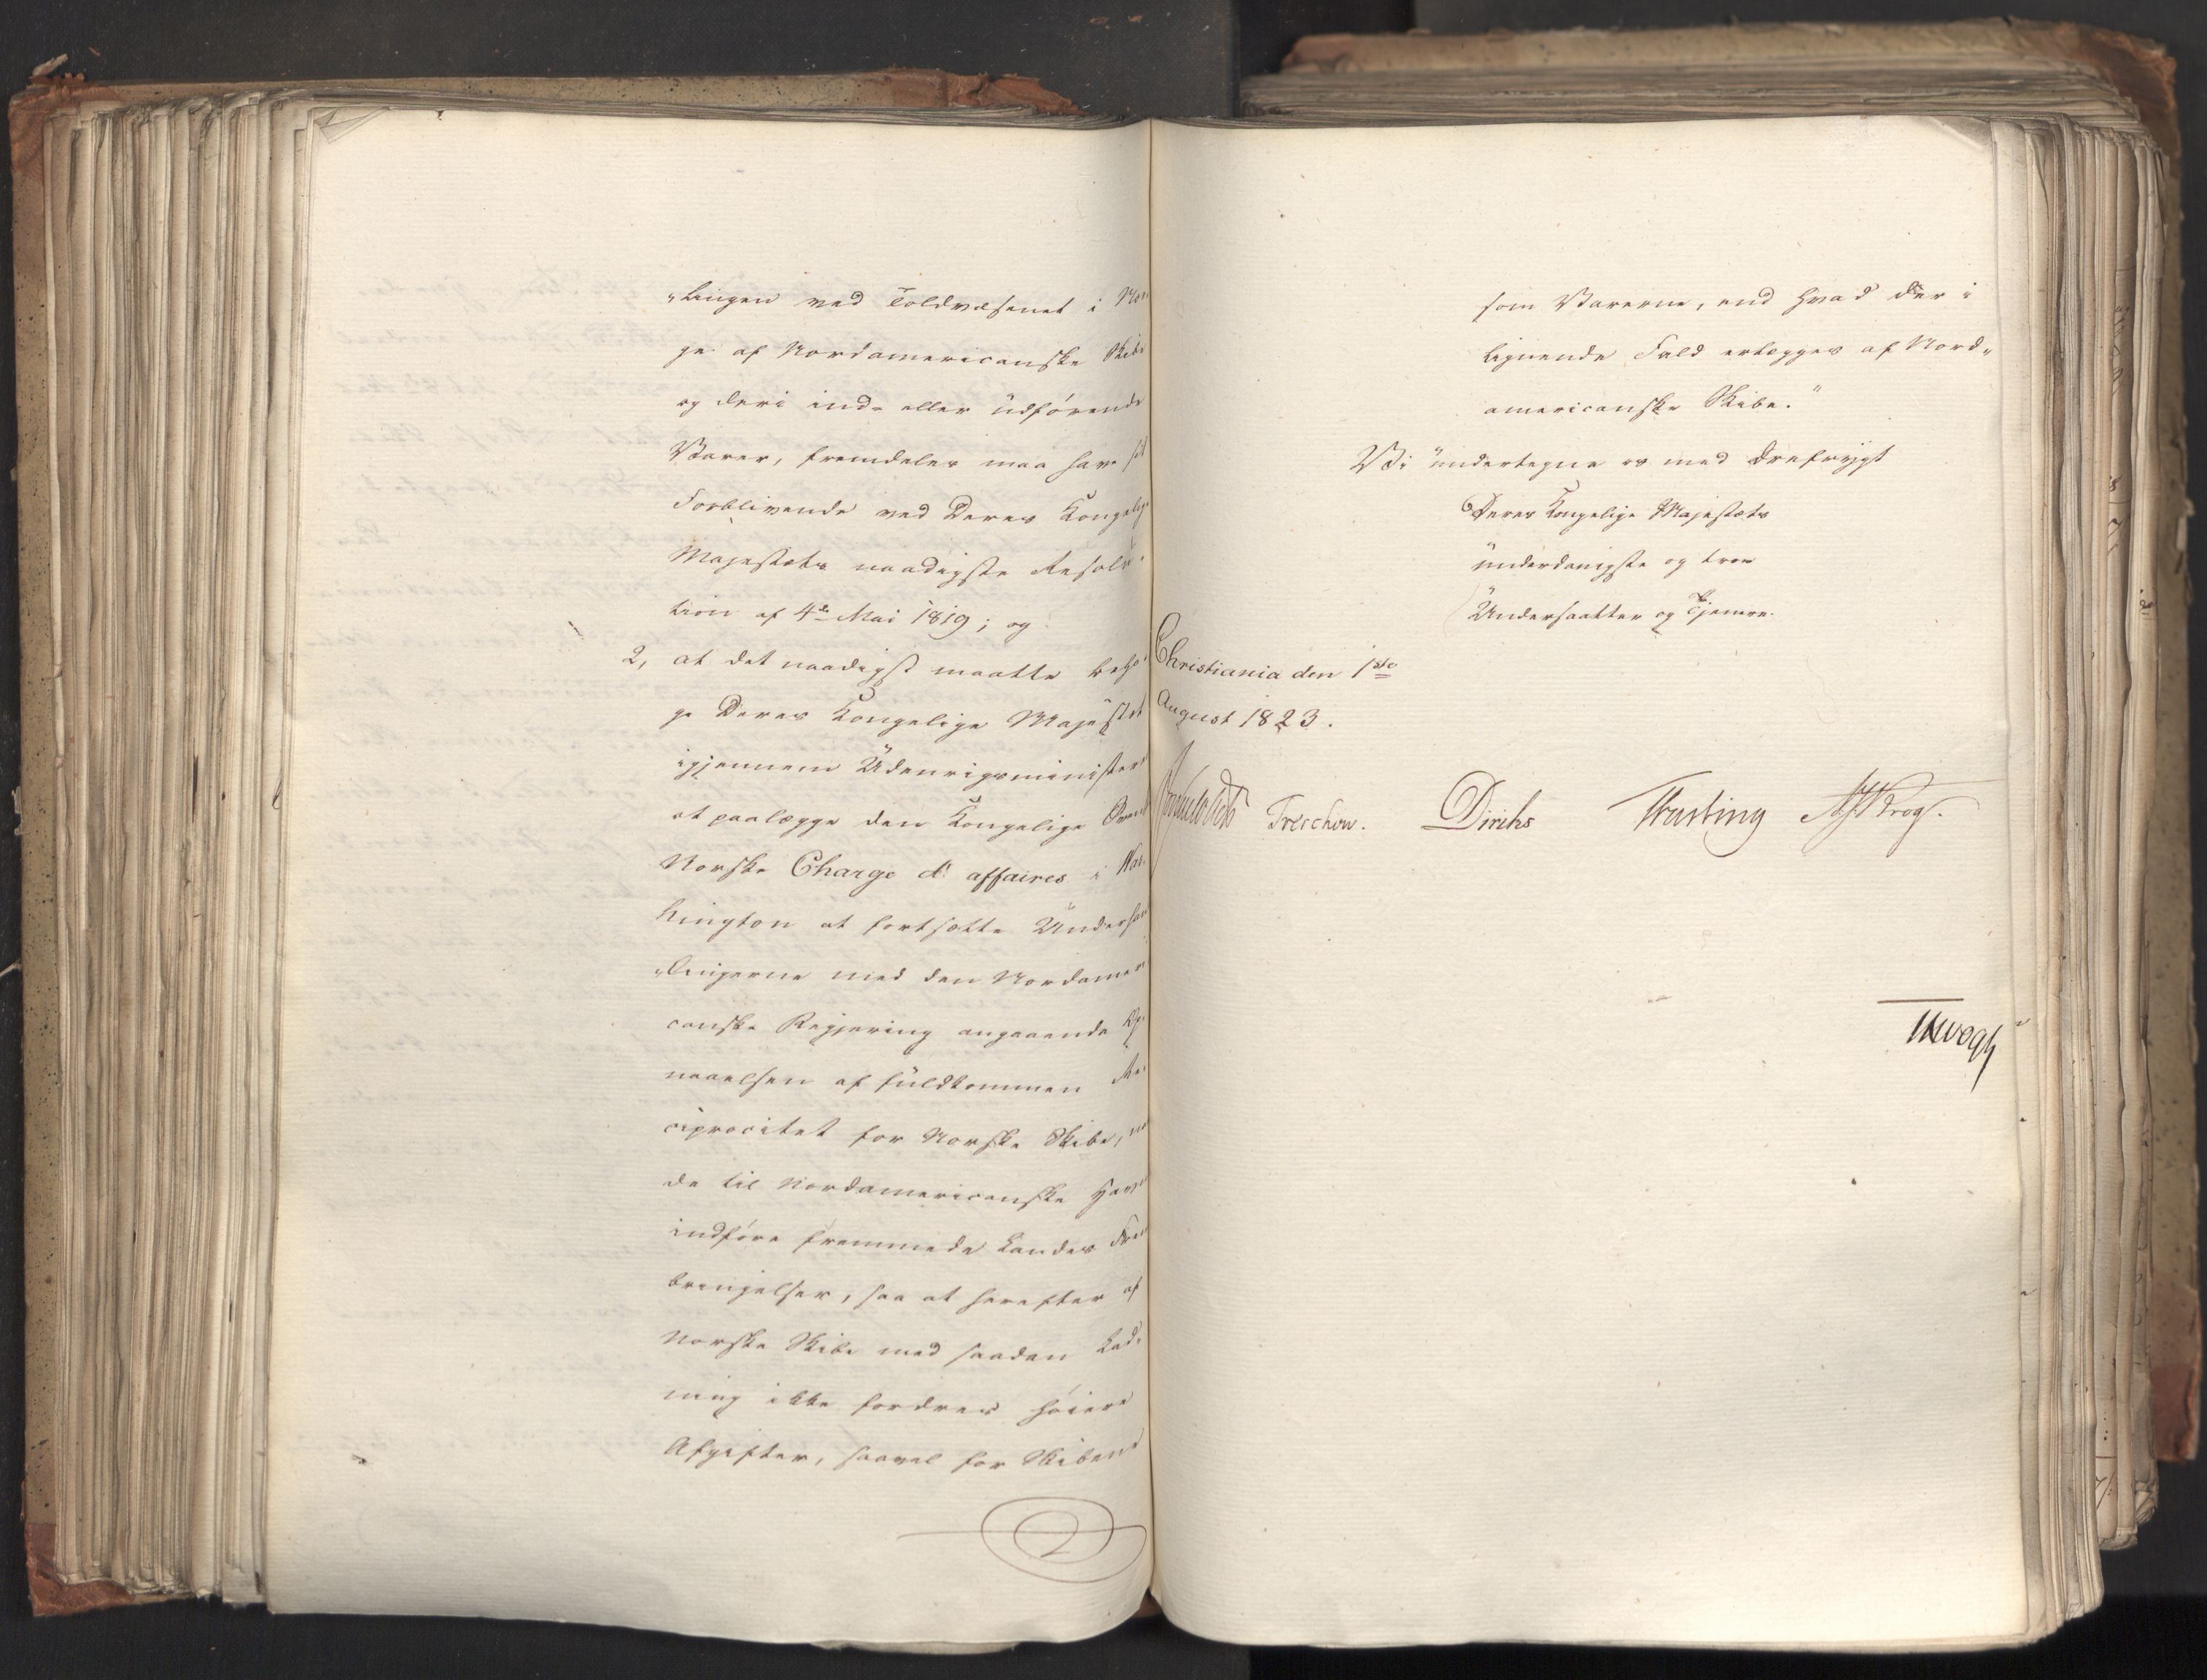 „lingen ved Toldvæsenet i Nor
ge af Nordamericanske Skibe
og deri ind- eller udførende
Varer, fremdeles maa have sit
Forblivende ved Deres Kongelige
Majestæts naadigste Resolu-
tion af 4de Mai 1819; og
2, at det naadigst maatte beha-
ge Deres Kongelige Majestæt
igjennem Udenrigsministeren
at paalægge den Kongelige Svensk
Norske Charge d'affaires i Was-
hington at fortsætte Underhand
„lingerne med den Nordameri
canske Regjering angaaende Op-
naaelsen af fuldkommen Re-
ciprocitet for Norske Skibe, 
de til Nordamericanske Havne
indføre fremmede Landes Frem
bringelser, saa at herefter af
Norske Skibe med saadan Lad-
ning ikke fordres høiere
Afgifter, saavel for Skibene
som Varerne, end hvad der i
lignende Fald erlægges af Nord„
americanske Skibe."
Vi undertegne os med Ærefrygt
Deres Kongelige Majestæts
underdanigste og troe
Undersaatter og Tjenere.
Christiania den 1ste
August 1823.
Treschow. Diriks Fasting Krog.